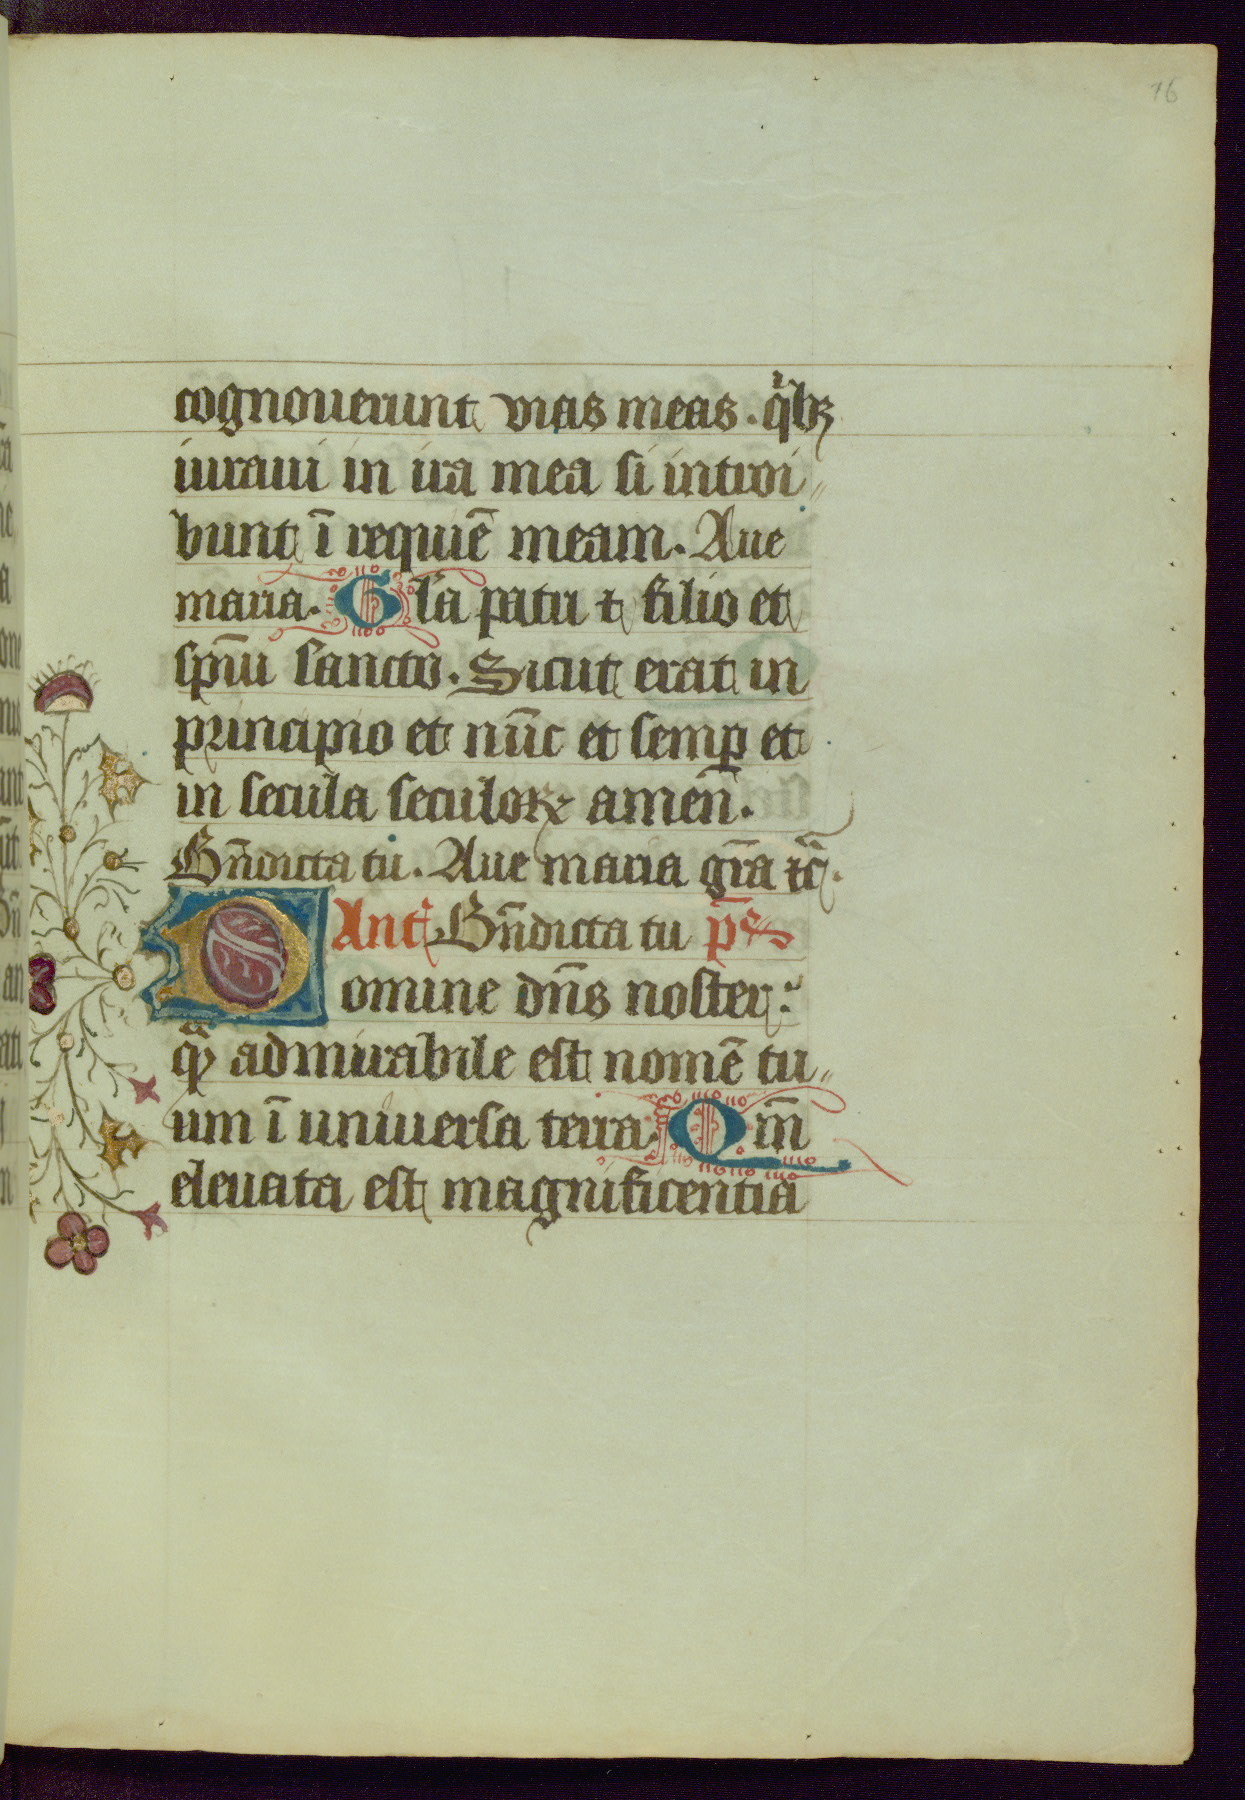 16
cognouerunt vias meas. qͥbꝫ
iuraui in ira mea si introi
bunt ī requiē meam. Aue
maria. Gl̄a patri ⁊ filio et
sp̄iu sancto. Sicut erat in
principio et nūc et semꝑ et
in secula seculoꝝ amen̄.
Bn̄dicta tu. Aue maria gr̄a ⁊c̄.
Ant̄ Bn̄dicta tu p̄s
Domine dn̄s noster:
qͣꝫ admirabile est nomē tu
um ī uniuersa terra. Qm̄
eleuata est magnificentia